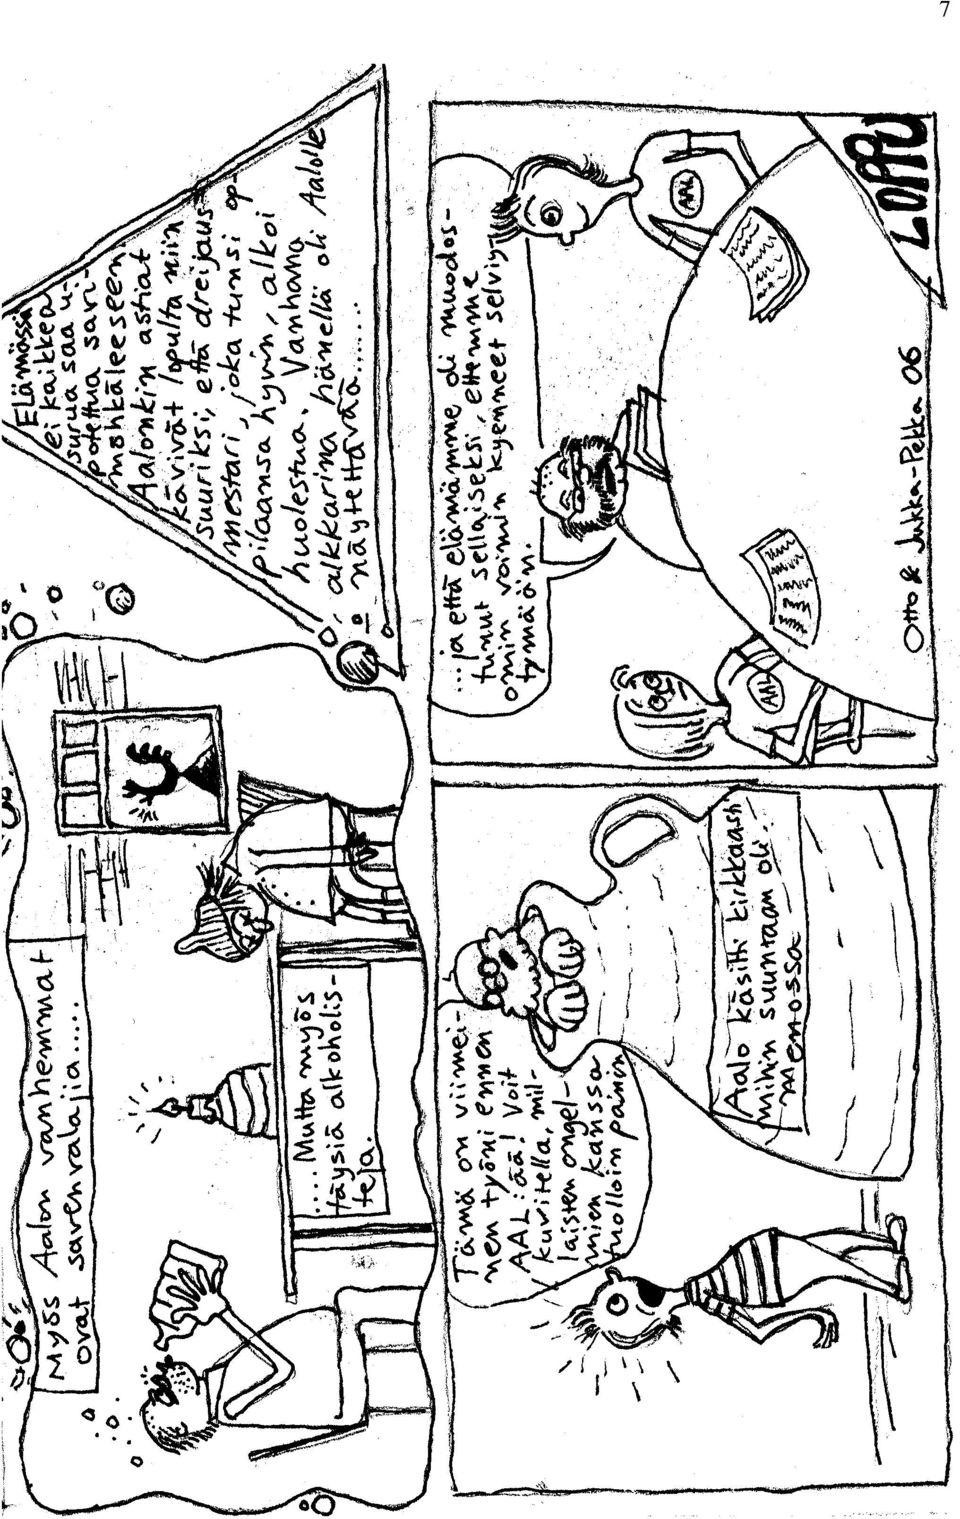 7
Myös Aalon vanhemmat
ovat savenvalajia.....
....Mutta myös
täysiä alkoholis-
teja.
Elämässä
ei kaikkea
surua saa u-
potettua savi-
möhkäleeseen.
Aalonkin astiat
kävivät lopulta niin
suuriksi, että dreijaus-
mestari, joka tunsi op-
pilaansa hyvin, alkoi
huolestua. Vanhana
alkkarina hänellä oli Aalolle
näytettävää......
Tämä on viimei-
nen työni ennen
AAL:ää! Voit
kuvitella, mil-
laisten ongel-
mien kanssa
tuolloin painin
Aalo käsitti kirkkaasti
mihin suuntaan oli
menossa
...ja että elämämme oli muodos-
tunut sellaiseksi, ettemme
omin voimin kyenneet selviy-
tymään.
AAL
AAL
Otto & Jukka-Pekka 06
LOPPU